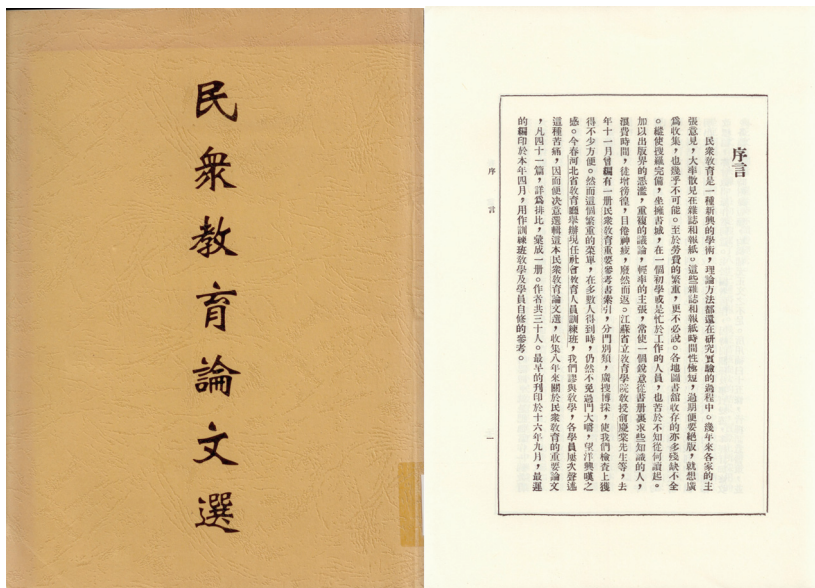 民衆教育論文選
序言
民衆教育是一種新興的學術，理論方法都還在研究實驗的過程中。幾年來各家的主
張意見，大率散見在雜誌和報紙。這些雜誌和報紙時間性極短，過期便要絕版，就想廣
爲收集，也幾乎不可能。至於勞費的繁重，更不必說。各地圖書舘收存的亦多殘缺不全
。縱使搜羅完備，坐擁書城，在一個初學或是忙於工作的人員，也苦於不知從何讀起。
加以出版界的恶濫，重複的議論，輕率的主張，常使一個銳意從書册裏求些知識的人，
浪費時間，徒增徬徨，目倦神疲，廢然而返。江蘇省立教育學院教授俞慶棠先生等，去
年十一月曾編有一册民衆教育重要參考書索引，分門別類，廣搜博採，使我們檢查上獲
得不少方便。然而這個繁重的菜單，在多數人得到時，仍然不免過門大嚼，望洋興嘆之
感。今春河北省教育廳舉辦現任社會教育人員訓練班，我們謬與教學，各學員屢次聲述
這種苦痛，因而便决意選輯這本民衆教育論文選，收集八年來關於民衆教育的重要論文
，凡四十一篇，詳爲排比，彙成一册。作者共三十人。最早的刊印於十六年九月，最遲
的編印於本年四月，用作訓練班教學及學員自修的參考。
序言
一